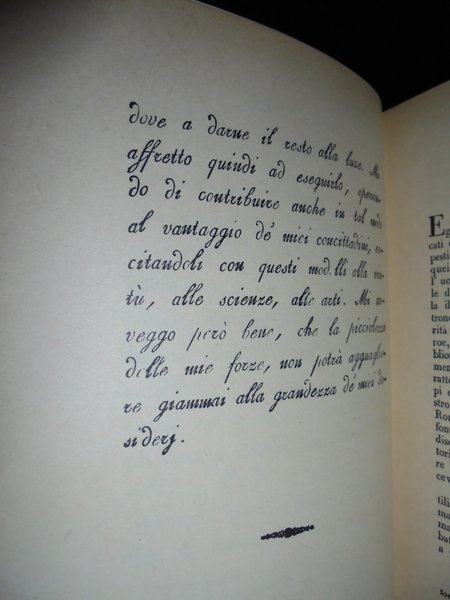 dove a darne il resto alla luce. Mi
affretto quindi ad eseguirlo, speran-
do di contribuire anche in tal modo
al vantaggio de' miei concittadini, ec-
citandoli con questi modelli alla vir-
tù, alle scienze, alle arti. Mi av-
veggo però bene, che la picciolezza
delle mie forze, non potrà agguaglia-
re giammai alla grandezza de' miei de-
siderj.
Eg
cati
pesti
quei
l' uo
le d
la d
tron
rità
roe,
blio
men
ratte
pi e
stro
Ron
font
dise
tori
re
cev
tili
ma
ma
bat
a